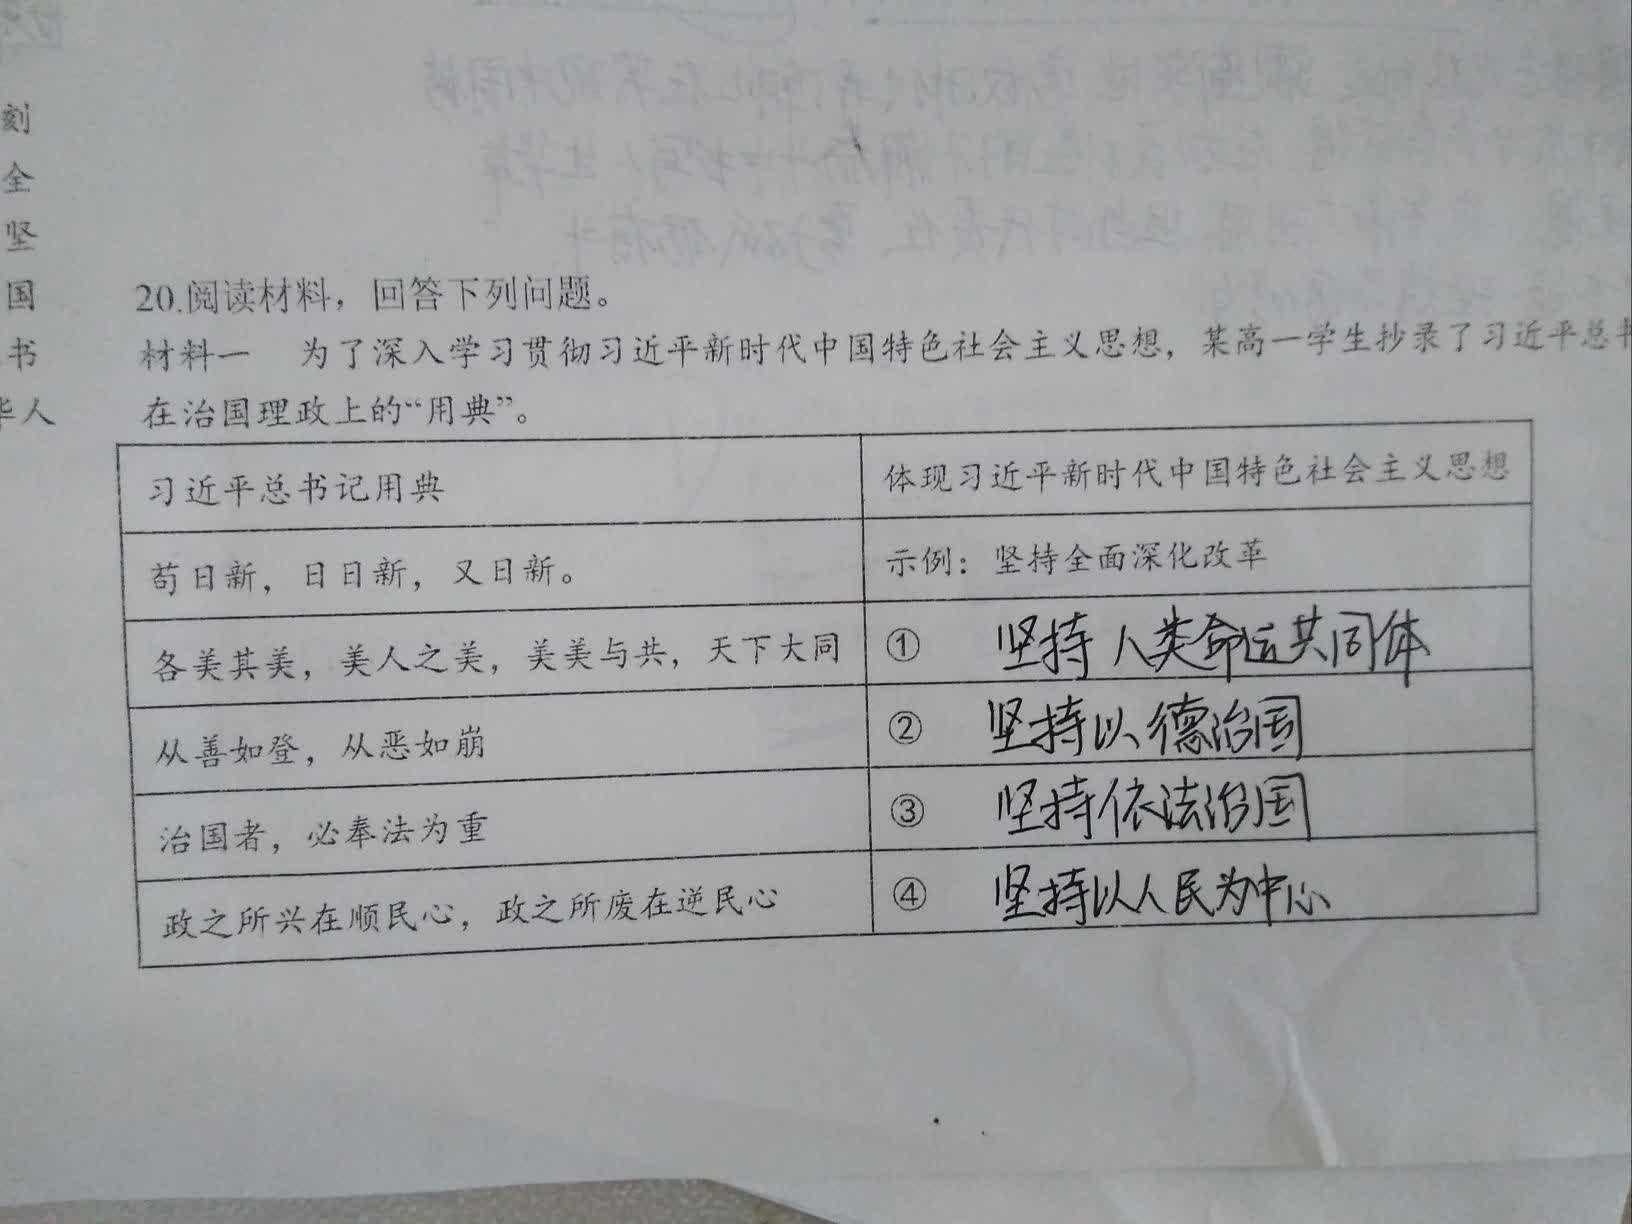 刻
全
坚
国
书
华人
20.阅读材料，回答下列问题。
材料一 为了深入学习贯彻习近平新时代中国特色社会主义思想，某高一学生抄录了习近平总书
在治国理政上的“用典”。
习近平总书记用典 体现习近平新时代中国特色社会主义思想
苟日新，日日新，又日新。 示例：坚持全面深化改革
各美其美，美人之美，美美与共，天下大同 ① 坚持人类命运共同体
从善如登，从恶如崩 ② 坚持以德治国
治国者，必奉法为重 ③ 坚持依法治国
政之所兴在顺民心，政之所废在逆民心 ④ 坚持以人民为中心